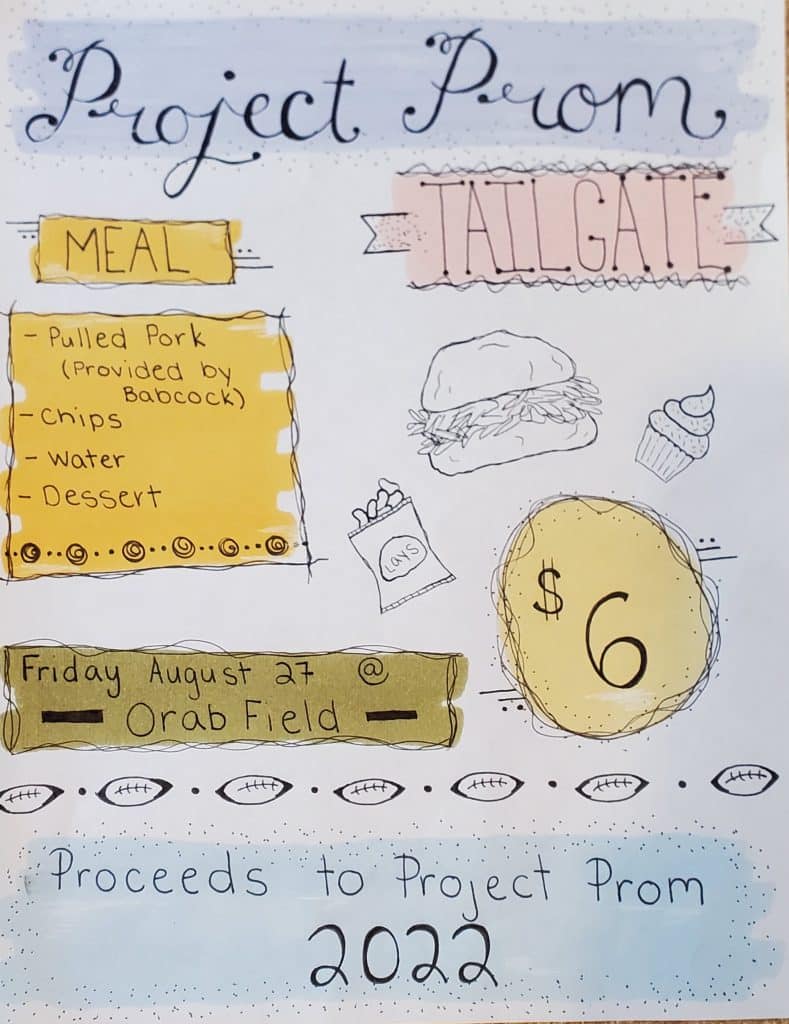 Project Prom
TAILGATE
MEAL
- Pulled Pork
(Provided by
Babcock)
- Chips
- Water
- Dessert
LAYS
$6
Friday August 27 @
Orab Field
Proceeds to Project Prom
2022